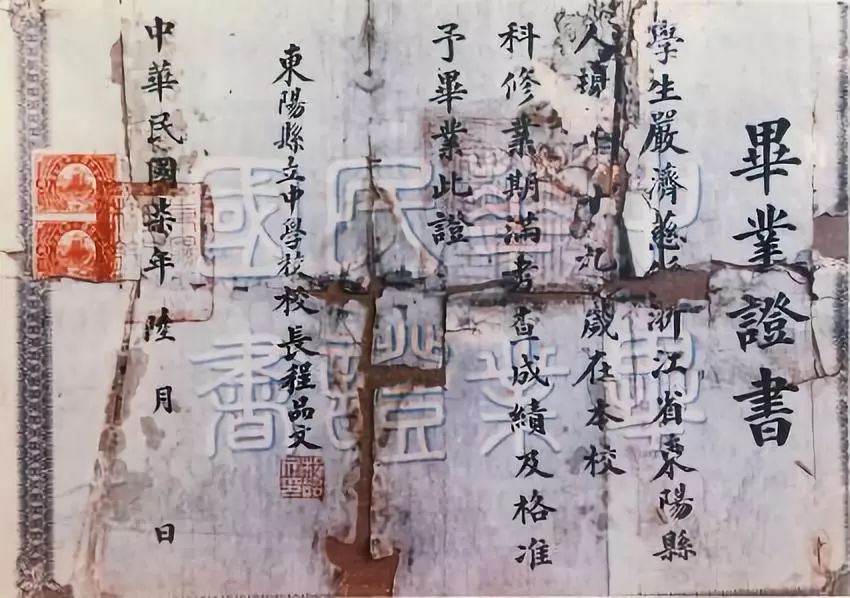 畢業證書
學生嚴濟慈係浙江省東陽縣
人現年十九歲在本校
科修業期滿考查成績及格准
予畢業此證
東陽縣立中學校校長程品文
中華民國柒年陸月 日
中華民國
畢業證書